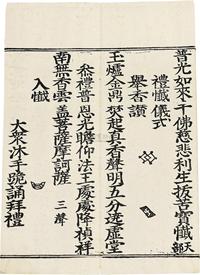 普光如來千佛慈悲利生拔苦寶懺
禮懺儀式
舉香讚
玉爐金鼎焚起真香聲明五分透虛堂
叅禮普恩光瞻仰法王處處降禎祥
南無香雲蓋菩薩摩訶薩 三聲
入懺
大衆沐手曉誦拜禮